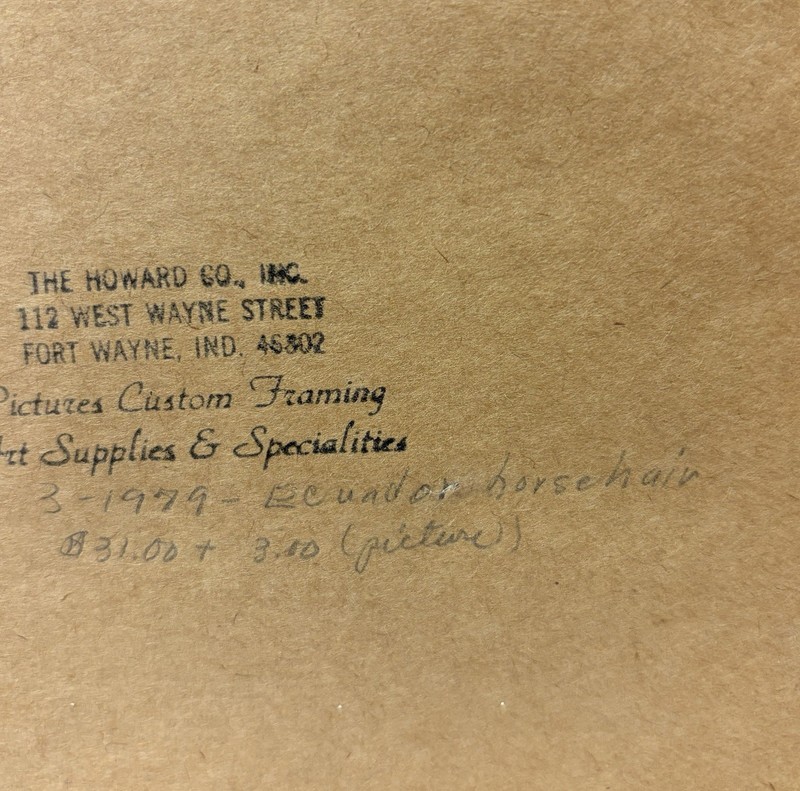 THE HOWARD CO., INC.
112 WEST WAYNE STREET
FORT WAYNE, IND. 46802
Pictures Custom Framing
Art Supplies & Specialities
3-1979 - Ecuador horsehair
$31.00 + 3.00 (picture)